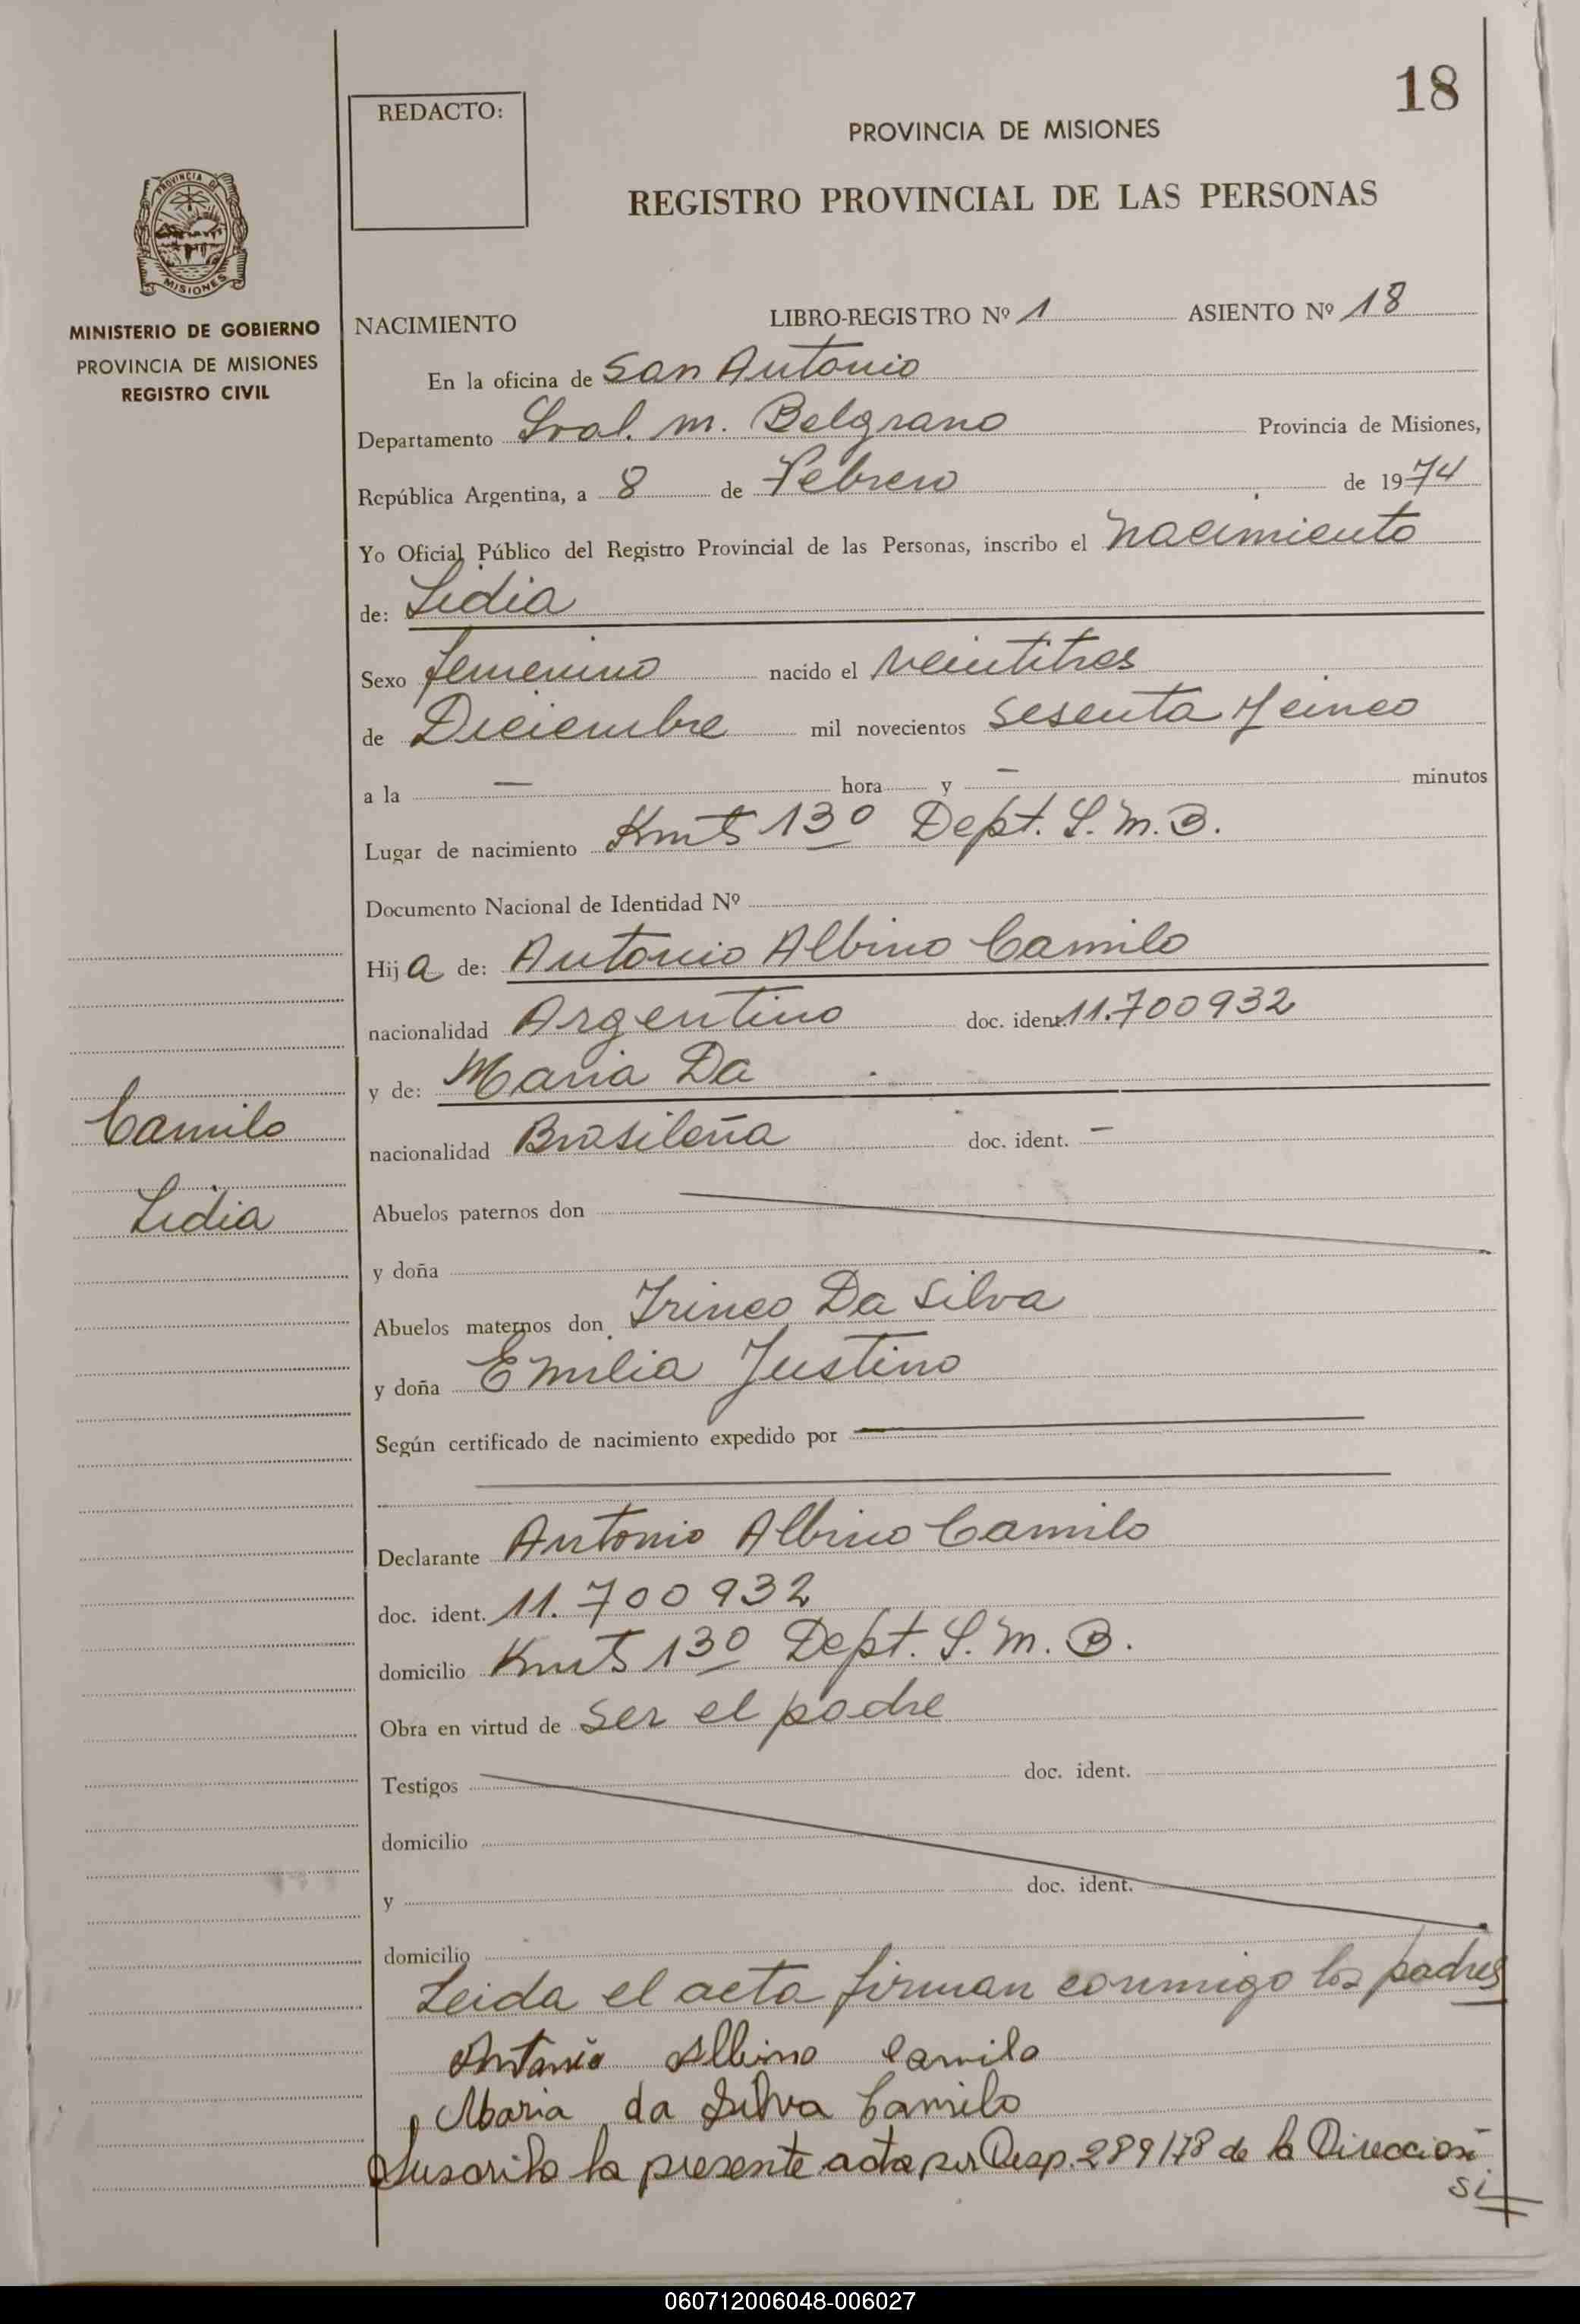 18
REDACTO:
PROVINCIA DE MISIONES
REGISTRO PROVINCIAL DE LAS PERSONAS
PROVINCIA DE
MISIONES
MINISTERIO DE GOBIERNO
PROVINCIA DE MISIONES
REGISTRO CIVIL
NACIMIENTO LIBRO-REGISTRO Nº 1 ASIENTO Nº 18
En la oficina de San Antonio
Departamento Gral. M. Belgrano Provincia de Misiones,
República Argentina, a 8 de Febrero de 1974
Yo Oficial Público del Registro Provincial de las Personas, inscribo el nacimiento
de: Lidia
Sexo femenino nacido el veintitres
de Diciembre mil novecientos sesenta y cinco
a la — hora y — minutos
Lugar de nacimiento Kmts 13º Dept. G.M.B.
Documento Nacional de Identidad Nº
Hija de: Antonio Albino Camilo
nacionalidad Argentino doc. ident. 11.700932
y de: Maria Da
nacionalidad Brasileña doc. ident. —
Camilo
Lidia
Abuelos paternos don
y doña
Abuelos maternos don Irineo Da Silva
y doña Emilia Justino
Según certificado de nacimiento expedido por
Declarante Antonio Albino Camilo
doc. ident. 11.700932
domicilio Kmts 13º Dept. G.M.B.
Obra en virtud de ser el padre
Testigos doc. ident.
domicilio
y doc. ident.
domicilio
Leida el acta firman conmigo los padres
Antonio Albino Camilo
Maria da Silva Camilo
Suscribo la presente acta por Desp. 289/78 de la Direccion
si
060712006048-006027